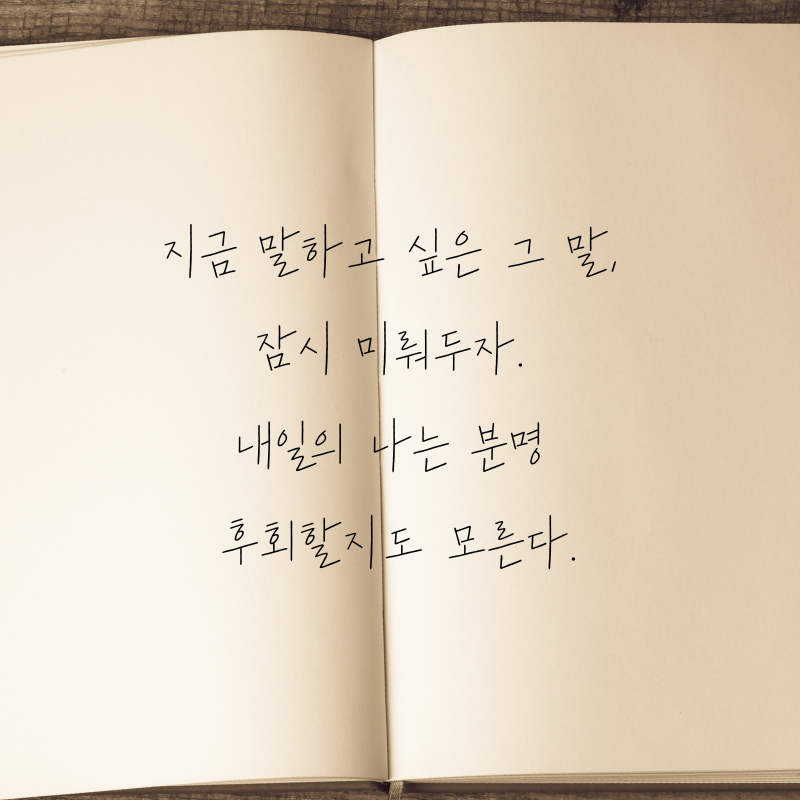 지금 말하고 싶은 그 말,
잠시 미뤄두자.
내일의 나는 분명
후회할지도 모른다.